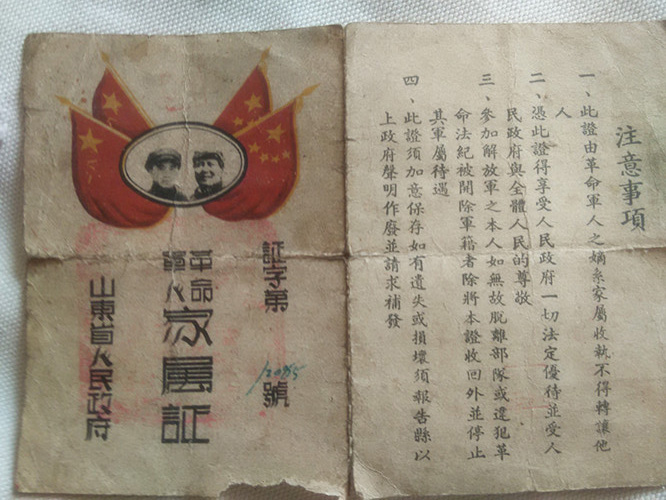 注意事項
一、此證由革命軍人之嫡系家屬收執不得轉讓他
人
二、憑此證得享受人民政府一切法定優待並受人
民政府與全體人民的尊敬
三、參加解放軍之本人如無故脫離部隊或違犯革
命法紀被開除軍籍者除將本證收回外並停止
其軍屬待遇
四、此證須加意保存如有遺失或損壞須報告縣以
上政府聲明作廢並請求補發
証字第 號
革命軍人家属証
山東省人民政府